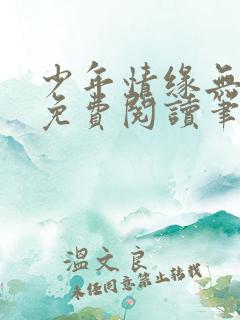 少年情緣無
免費閱讀筆
溫文良
未任同意禁止转载